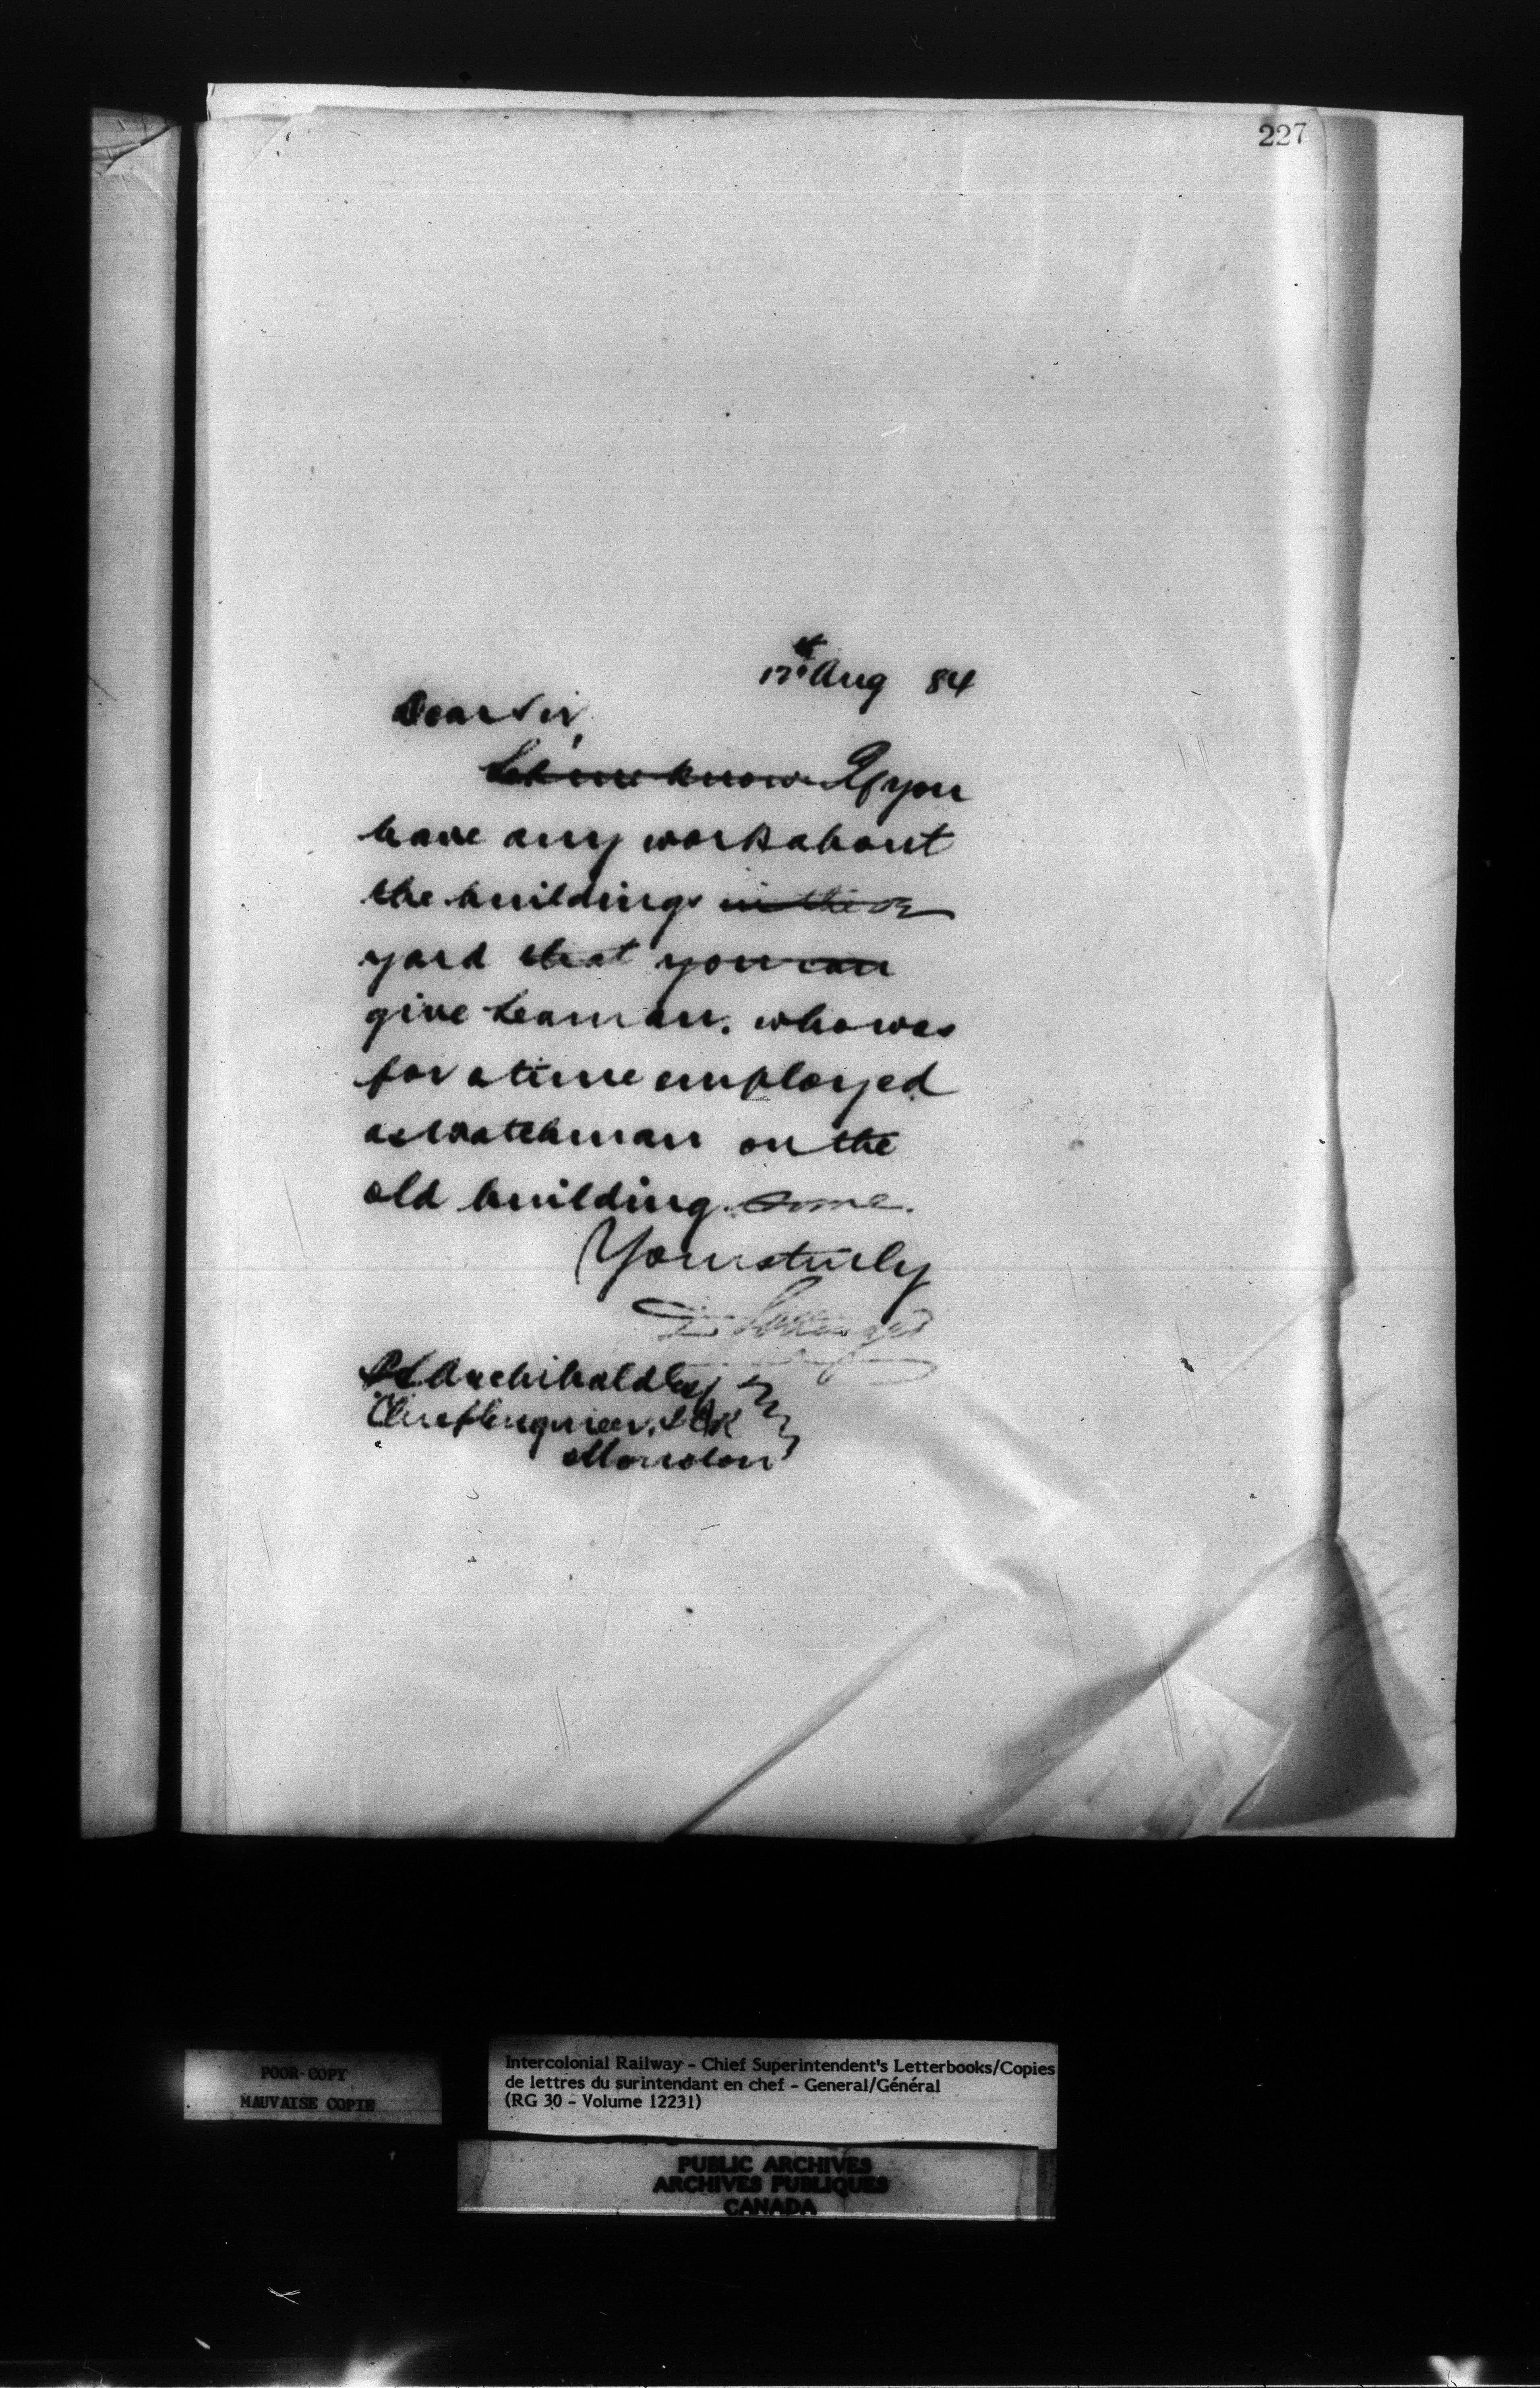 227
17th Aug 84
Dear Sir,
Let me know If you
have any work about
the buildings in the or
yard that you can
give Leaman. who was
for a time employed
as Watchman on the
old building. some.
Yours truly
D Pottinger
P S Archibald Esq
Chief Engineer. I C R
Moncton
POOR COPY
MAUVAISE COPIE
Intercolonial Railway - Chief Superintendent's Letterbooks/Copies
de lettres du surintendant en chef - General/Général
(RG 30 - Volume 12231)
PUBLIC ARCHIVES
ARCHIVES PUBLIQUES
CANADA